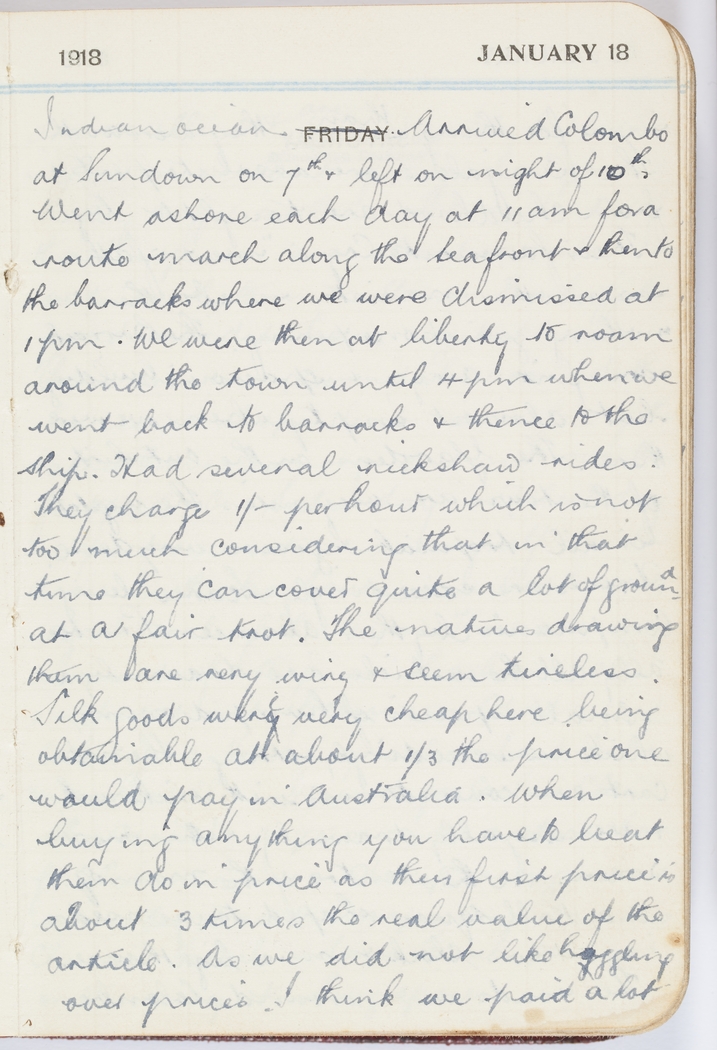 1918 JANUARY 18
Indian ocean. FRIDAY. Arrived Colombo
at Sundown on 7th & left on night of 10th.
Went ashore each day at 11 am for a
route march along the seafront & then to
the barracks where we were dismissed at
1 pm. We were then at liberty to roam
around the town until 4 pm when we
went back to barracks & thence to the
ship. Had several rickshaw rides.
They charge 1/- per hour which is not
too much considering that in that
time they can cover quite a lot of ground
at a fair trot. The natives drawing
them are very wiry & seem tireless.
Silk goods were very cheap here being
obtainable at about 1/3 the price one
would pay in Australia. When
buying anything you have to beat
them do in price as their first price is
about 3 times the real value of the
article. As we did not like haggling
over prices I think we paid a lot